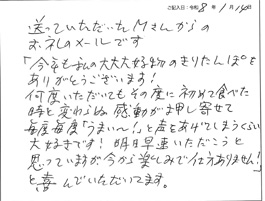 ご記入日:令和 8年 1月 14日
送っていただいたMさんからの
お礼のメールです
「今年も私の大大大好物のきりたんぽを
ありがとうございます!
何度いただいてもその度に初めて食べた
時と変わらぬ感動が押し寄せて
毎度毎度「うまい〜!」と声をあげてしまうくらい
大好きです! 明日早速いただこうと
思っていますが今から楽しみで仕方ありません!」
と喜んでいただいてます。